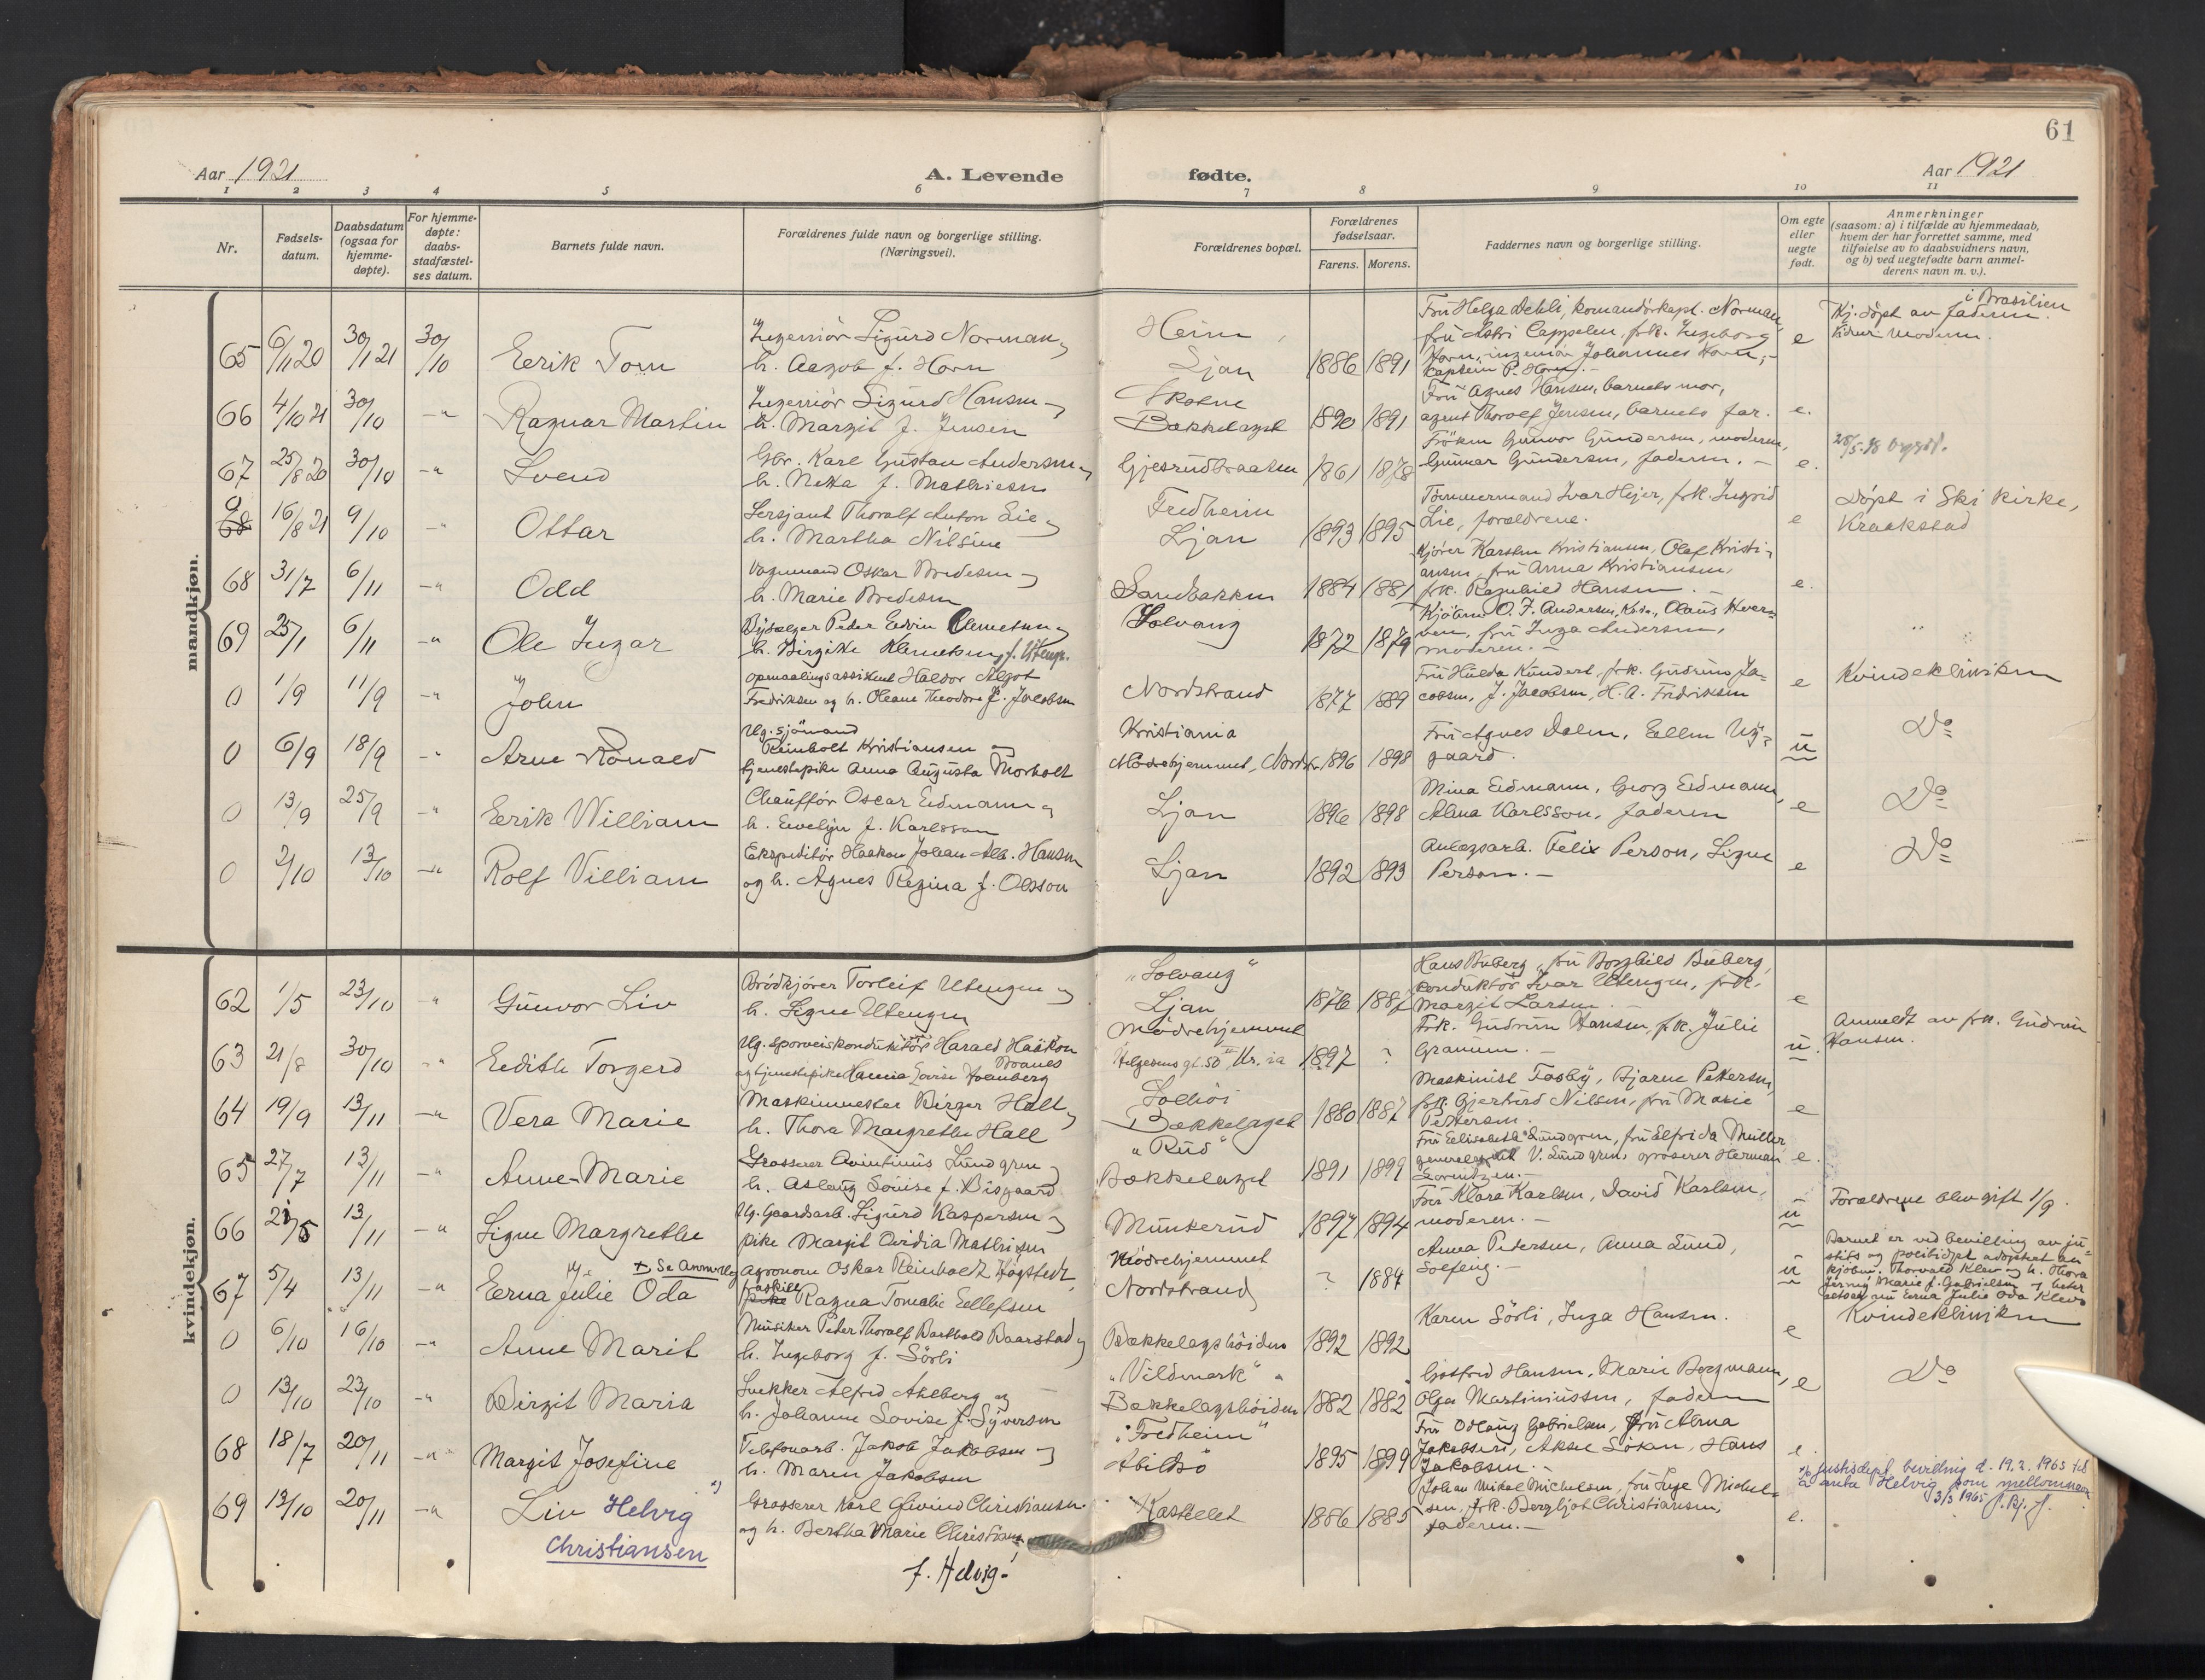 61
Aar 1921
A. Levende fødte.
Aar 1921
1 2 3 4 5 6 7 8 9 10 11
Nr.
Fødsels-
datum.
Daabsdatum
(ogsaa for
hjemme-
døpte).
For hjemme-
døpte:
daabs-
stadfæstel-
ses datum.
Barnets fulde navn.
Forældrenes fulde navn og borgerlige stilling.
(Næringsvei).
Forældrenes bopæl.
Forældrenes
fødselsaar.
Farens. Morens.
Faddernes navn og borgerlige stilling.
Om egte
eller
uegte
født.
Anmerkninger
(saasom: a) i tilfælde av hjemmedaab,
hvem der har forrettet samme, med
tilføielse av to daabsvidners navn,
og b) ved uegtefødte barn anmel-
derens navn m. v.).
mandkjøn.
65 6/11 20 30/1 21 30/10 Eerik Tom
Ingeniör Sigurd Norman
h. Aagot f. Horn
Heim
Ljan
1886 1891
Fru Helga Dehli, komandörkapt. Norman,
fru Astri Cappelen, frk. Ingeborg
Horn, ingeniör Johannes Horn,
kaptein P. Horn. -
e
Hj. döpt av faderen i Brasilien
66 4/10 21 30/10 -"- Ragnar Martin
Ingeniör Sigurd Hansen
h. Margit f. Jensen
Bækkelaget
1890 1891
Fru Agnes Hansen, barnets mor,
agent Thorolf Jensen, barnets far.
e.
67 25/8 20 30/10 -"- Svend
Gbr. Karl Gustav Andersen
h. Netta f. Mathiesen
Gjersrudbraaten
1861 1878
Fröken Gunvor Gundersen, moderen,
Gunnar Gundersen, faderen. -
e.
0 68 16/8 21 9/10 -"- Ottar
Sersjant Thoralf Anton Lie
h. Martha Nilsine
Fredheim
Ljan
1893 1895
Tömmermand Ivar Hejer, frk. Ingrid
Lie, forældrene.
e
Döpt i Ski kirke,
Kraakstad
68 31/7 6/11 -"- Odd
Vognmand Oskar Bredesen
h. Marie Bredesen
Sandbakken
1884 1881
Kjörer Karsten Kristiansen, Olaf Kristi-
ansen, fru Anna Kristiansen,
frk. Ragnhild Hansen. -
e.
69 25/1 6/11 -"- Ole Ingar
Bysælger Peder Edvin Clemetsen
h. Birgitte Klemetsen, f. Utengn.
Solvang
1872 1879
Kjöbm. O. F. Andersen, Olaus
fru Inga Andersen,
moderen. -
0 1/9 11/9 -"- John
Opmaalingsassistent Haldor Algot
Fredriksen og h. Oleane Theodora f. Jacobsen
Nordstrand
1877 1889
Fru Hulda Kundert, frk. Gudrun Ja-
cobsen, J. Jacobsen, H. A. Fredriksen
e
Kvindeklinikken
0 6/9 18/9 -"- Arne Ronald
Ug. sjömand
Reinholt Kristiansen
tjenestepike Anna Augusta Morholt
Kristiania
Mödrehjemmet, Nordstr.
1896 1898
Fru Agnes Dalen, Ellen Ny-
gaard.
u
Do
0 13/9 25/9 -"- Eerik William
Chaufför Oscar Erdmann
h. Evelyn f. Karlsson
Ljan
1896 1898
Mina Erdmann, Georg Erdmann,
Alma Karlsson, faderen
e
Do
0 2/10 13/10 -"- Rolf Villiam
Ekspeditör Haakon Johan Alb. Hansen
og h. Agnes Regina f. Olsson
Ljan
1892 1893
Anlægsarb. Felix Person, Signe
Person. -
e
Do
kvindekjøn.
62 1/5 23/10 -"- Gunvor Liv
Brödkjörer Torleif Utengen og
h. Signe Utengen
"Solvang"
Ljan
1876 1887
Hans Buberg, fru Borghild Buberg,
konduktör Ivar Utengen, frk.
Margit Larsen. -
e
63 21/8 30/10 -"- Eedith Torgerd
Ug. sporveiskonduktör Harald Haakon
og tjenestepike Lovise Holmberg
Mödrehjemmet
Helgesens gt. 50, Kr.ia
1897 ?
Frk. Gudrun Hansen, frk. Julie
Granum. -
u.
Anmeldt av frk. Gudrun
Hansen.
64 19/9 13/11 -"- Vera Marie
Maskinmester Birger Hall
h. Thora Margrethe Hall
Solhöi
Bækkelaget
1880 1887
Maskinist Fosby, Bjarne Pettersen,
frk. Gjertrud Nilsen, fru Marie
Pettersen.
e
65 27/7 13/11 -"- Anne-Marie
Grosserer Avintinius Lundgren
h. Aslaug Louise f. Bisgaard
"Rud"
Bækkelaget
1891 1899
Fru Eelisabeth Lundgren, fru Elfrida Müller,
generalagent V. Lundgren, grosserer Herman
Lorentzen. -
e.
66 21/5 13/11 -"- Signe Margrethe
Ug. Gaardsarb. Sigurd Kaspersen
pike Margit Ovidia Mathisen
Munkerud
1897 1894
Fru Klara Karlsen, David Karlsen,
moderen. -
u
Forældrene blev gift 1/9.
67 5/4 13/11 -"- Eerna Julie Oda
+ Se Anmerkg
Agronom Oskar Reinholdt Högstedt,
fraskilt
pike Ragna Tomalie Eellefsen
Mödrehjemmet
Nordstrand
? 1884
Anna Pedersen, Anna Lund,
Solfeng. -
u
Barnet er ved bevilling av ju-
stits og politidept adoptert av
kjöbm. Thorvald Klev og h. Thora
Jenny Marie f. Gabrielsen og heter
nu Erna Julie Oda Klev
0 6/10 16/10 -"- Anne Marit
Musiker Peder Thoralf Barthold Baarstad
h. Ingeborg f. Sörli
Bækkelagshöiden
1892 1892
Karen Sörli, Inga Hansen.
e
Kvindeklinikken
0 13/10 23/10 -"- Birgit Maria
Snekker Alfred Ahlberg og
h. Johanne Lovise f. Syversen
"Vildmark"
Bækkelagshöiden
1882 1882
Gotfred Hansen, Marie Borgmann,
Olga Martiniussen, faderen
e
Do
68 18/7 20/11 -"- Margit Josefine
Telefonarb. Jakob Jakobsen
h. Maren Jakobsen
"Fredheim"
Abildsö
1895 1899
Fru Odlaug Gabrielsen, fru Alma
Jakobsen, Aksel Hans
Jakobsen. -
e.
69 13/10 20/11 -"- Liv Helvig
Christiansen
Grosserer Karl Eivind Christiansen
og h. Bertha Marie Christians
f. Helvig.
Kastellet
1886 1885
Johan Mikal Michelsen, fru Inge Michel-
sen, frk. Bergljot Christiansen,
faderen. -
e.
Justisdept. bevilling d. 19.2.1965 til
å anta Helvig som mellomnavn
3/3 1965